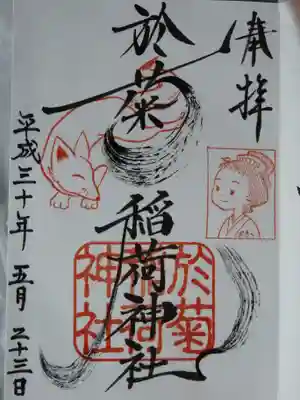 奉拝
於菊
稲荷神社
於菊
稲荷
神社
平成三十年 五月 二十三日